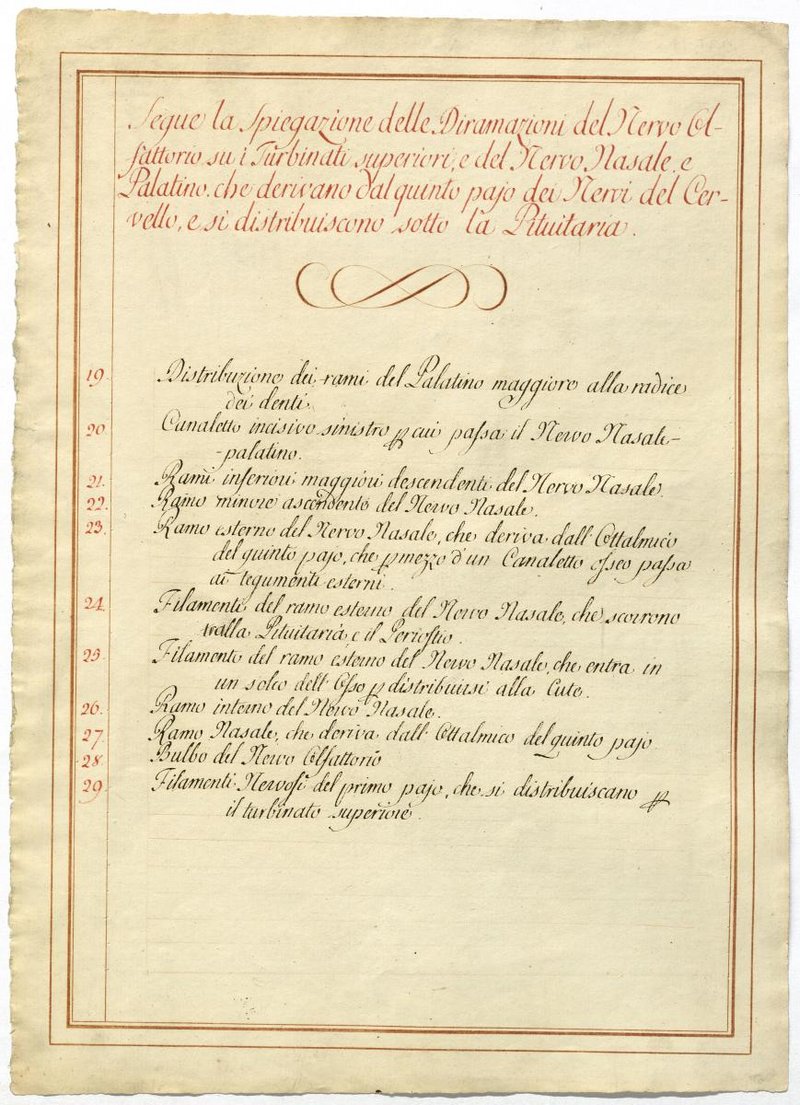 Segue la Spiegazione delle Diramazioni del Nervo Ol-
fattorio su i Turbinati superiori, e del Nervo Nasale, e
Palatino, che derivano dal quinto pajo dei Nervi del Cer-
vello, e si distribuiscono sotto la Pituitaria.
19. Distribuzione dei rami del Palatino maggiore alla radice
dei denti.
20. Canaletto incisivo sinistro ꝑ cui passa il Nervo Nasale-
-palatino.
21. Rami inferiori maggiori descendenti del Nervo Nasale.
22. Ramo minore ascendente del Nervo Nasale.
23. Ramo esterno del Nervo Nasale, che deriva dall' Ottalmico
del quinto pajo, che ꝑ mezzo d'un Canaletto osseo passa
ai tegumenti esterni.
24. Filamenti del ramo esterno del Nervo Nasale, che scorrono
tralla Pituitaria e il Periostio.
25. Filamento del ramo esterno del Nervo Nasale, che entra in
un solco dell' Osso ꝑ distribuirsi alla Cute.
26. Ramo interno del Nervo Nasale.
27. Ramo Nasale, che deriva dall' Ottalmico del quinto pajo
28. Bulbo del Nervo Olfattorio
29. Filamenti Nervosi del primo pajo, che si distribuiscano ꝑ
il turbinato superiore.